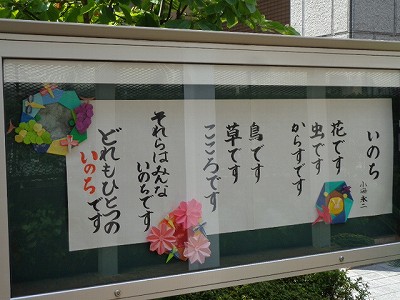 いのち
小海永二
花です
虫です
からすです
鳥です
草です
こころです
それらはみんな
いのちです
どれもひとつの
いのちです